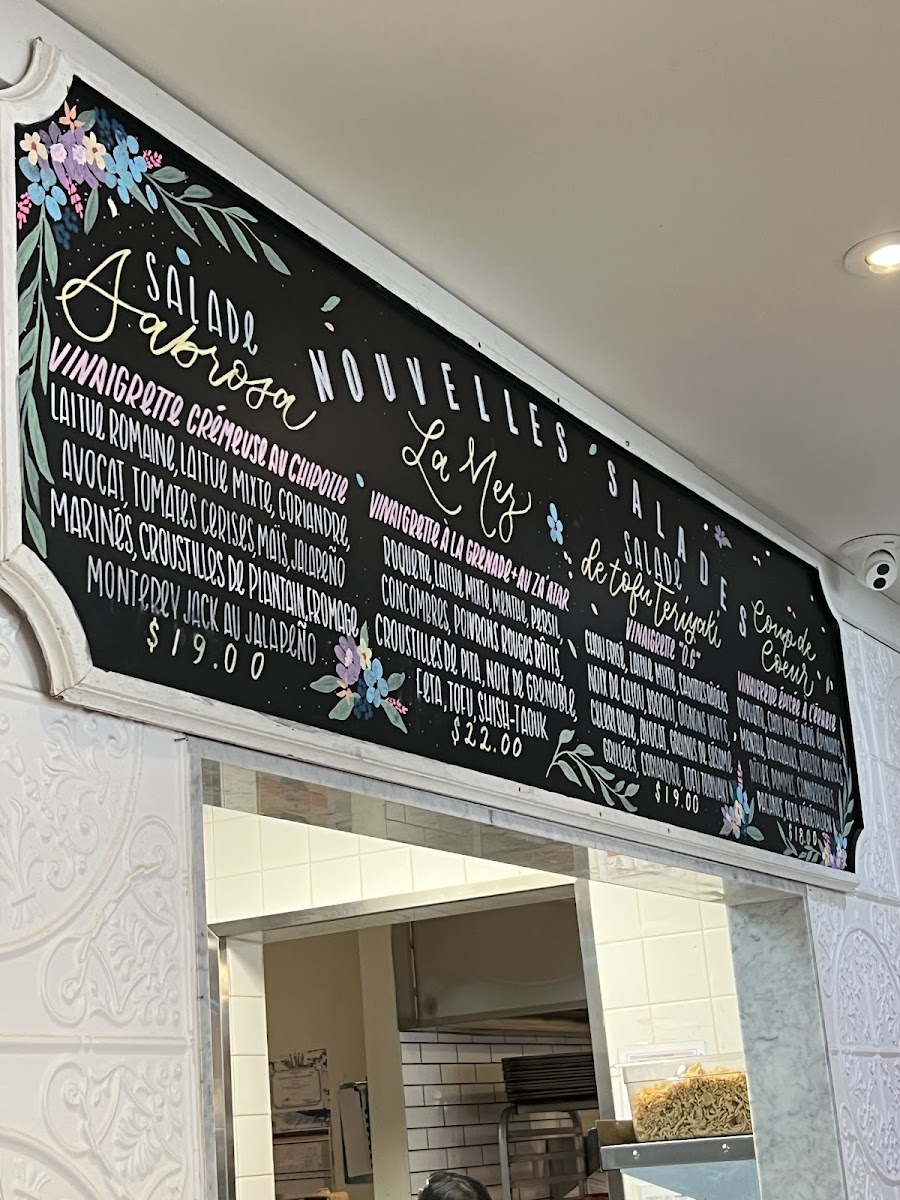 NOUVELLES SALADES
SALADE
Sabrosa
VINAIGRETTE CRÉMEUSE AU CHIPOTLE
LAITUE ROMAINE, LAITUE MIXTE, CORIANDRE,
AVOCAT, TOMATES CERISES, MAÏS, JALAPEÑO
MARINÉS, CROUSTILLES DE PLANTAIN, FROMAGE
MONTEREY JACK AU JALAPEÑO
$19.00
La Mez
VINAIGRETTE À LA GRENADE + AU ZA'ATAR
ROQUETTE, LAITUE MIXTE, MENTHE, PERSIL,
CONCOMBRES, POIVRONS ROUGES RÔTIS,
CROUSTILLES DE PITA, NOIX DE GRENOBLE,
FETA, TOFU SHISH-TAOUK
$22.00
SALADE
de tofu Teriyaki
VINAIGRETTE "O.G"
CHOU FRISÉ, LAITUE MIXTE,
NOIX DE CAJOU, BROCOLI, OIGNONS VERTS,
CÉLERI RAVE, AVOCAT, GRAINES DE SÉSAME
GRILLÉES, CORIANDRE, TOFU TERIYAKI
$19.00
Coup de
Coeur
VINAIGRETTE À L'ÉRABLE
$18.00